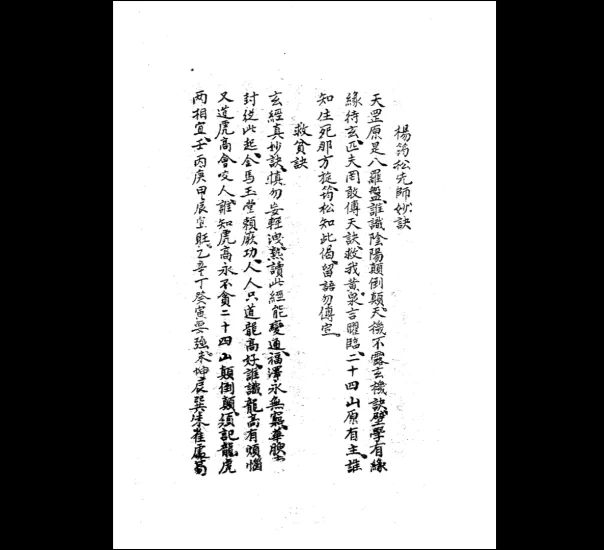 楊筠松先師妙訣
天罡原是八羅盤誰識陰陽顛倒顛天機不露玄機訣壁學有緣
緣待玄匹夫罔敢傳天訣救我黃泉言曜臨二十四山原有主誰
知生死那方旋筠松知此偈留語勿傳宣
救貧訣
玄經真妙訣慎勿妄輕洩熟讀此經能變通福澤永無窮華腴
封從此起金馬玉堂賴厥功人人只道龍高好誰識龍高有煩惱
又道虎高會咬人誰知虎高永不貧二十四山顛倒顛須記龍虎
兩相宜壬丙庚甲辰宜旺乙辛丁癸寅要強未坤辰巽朱雀